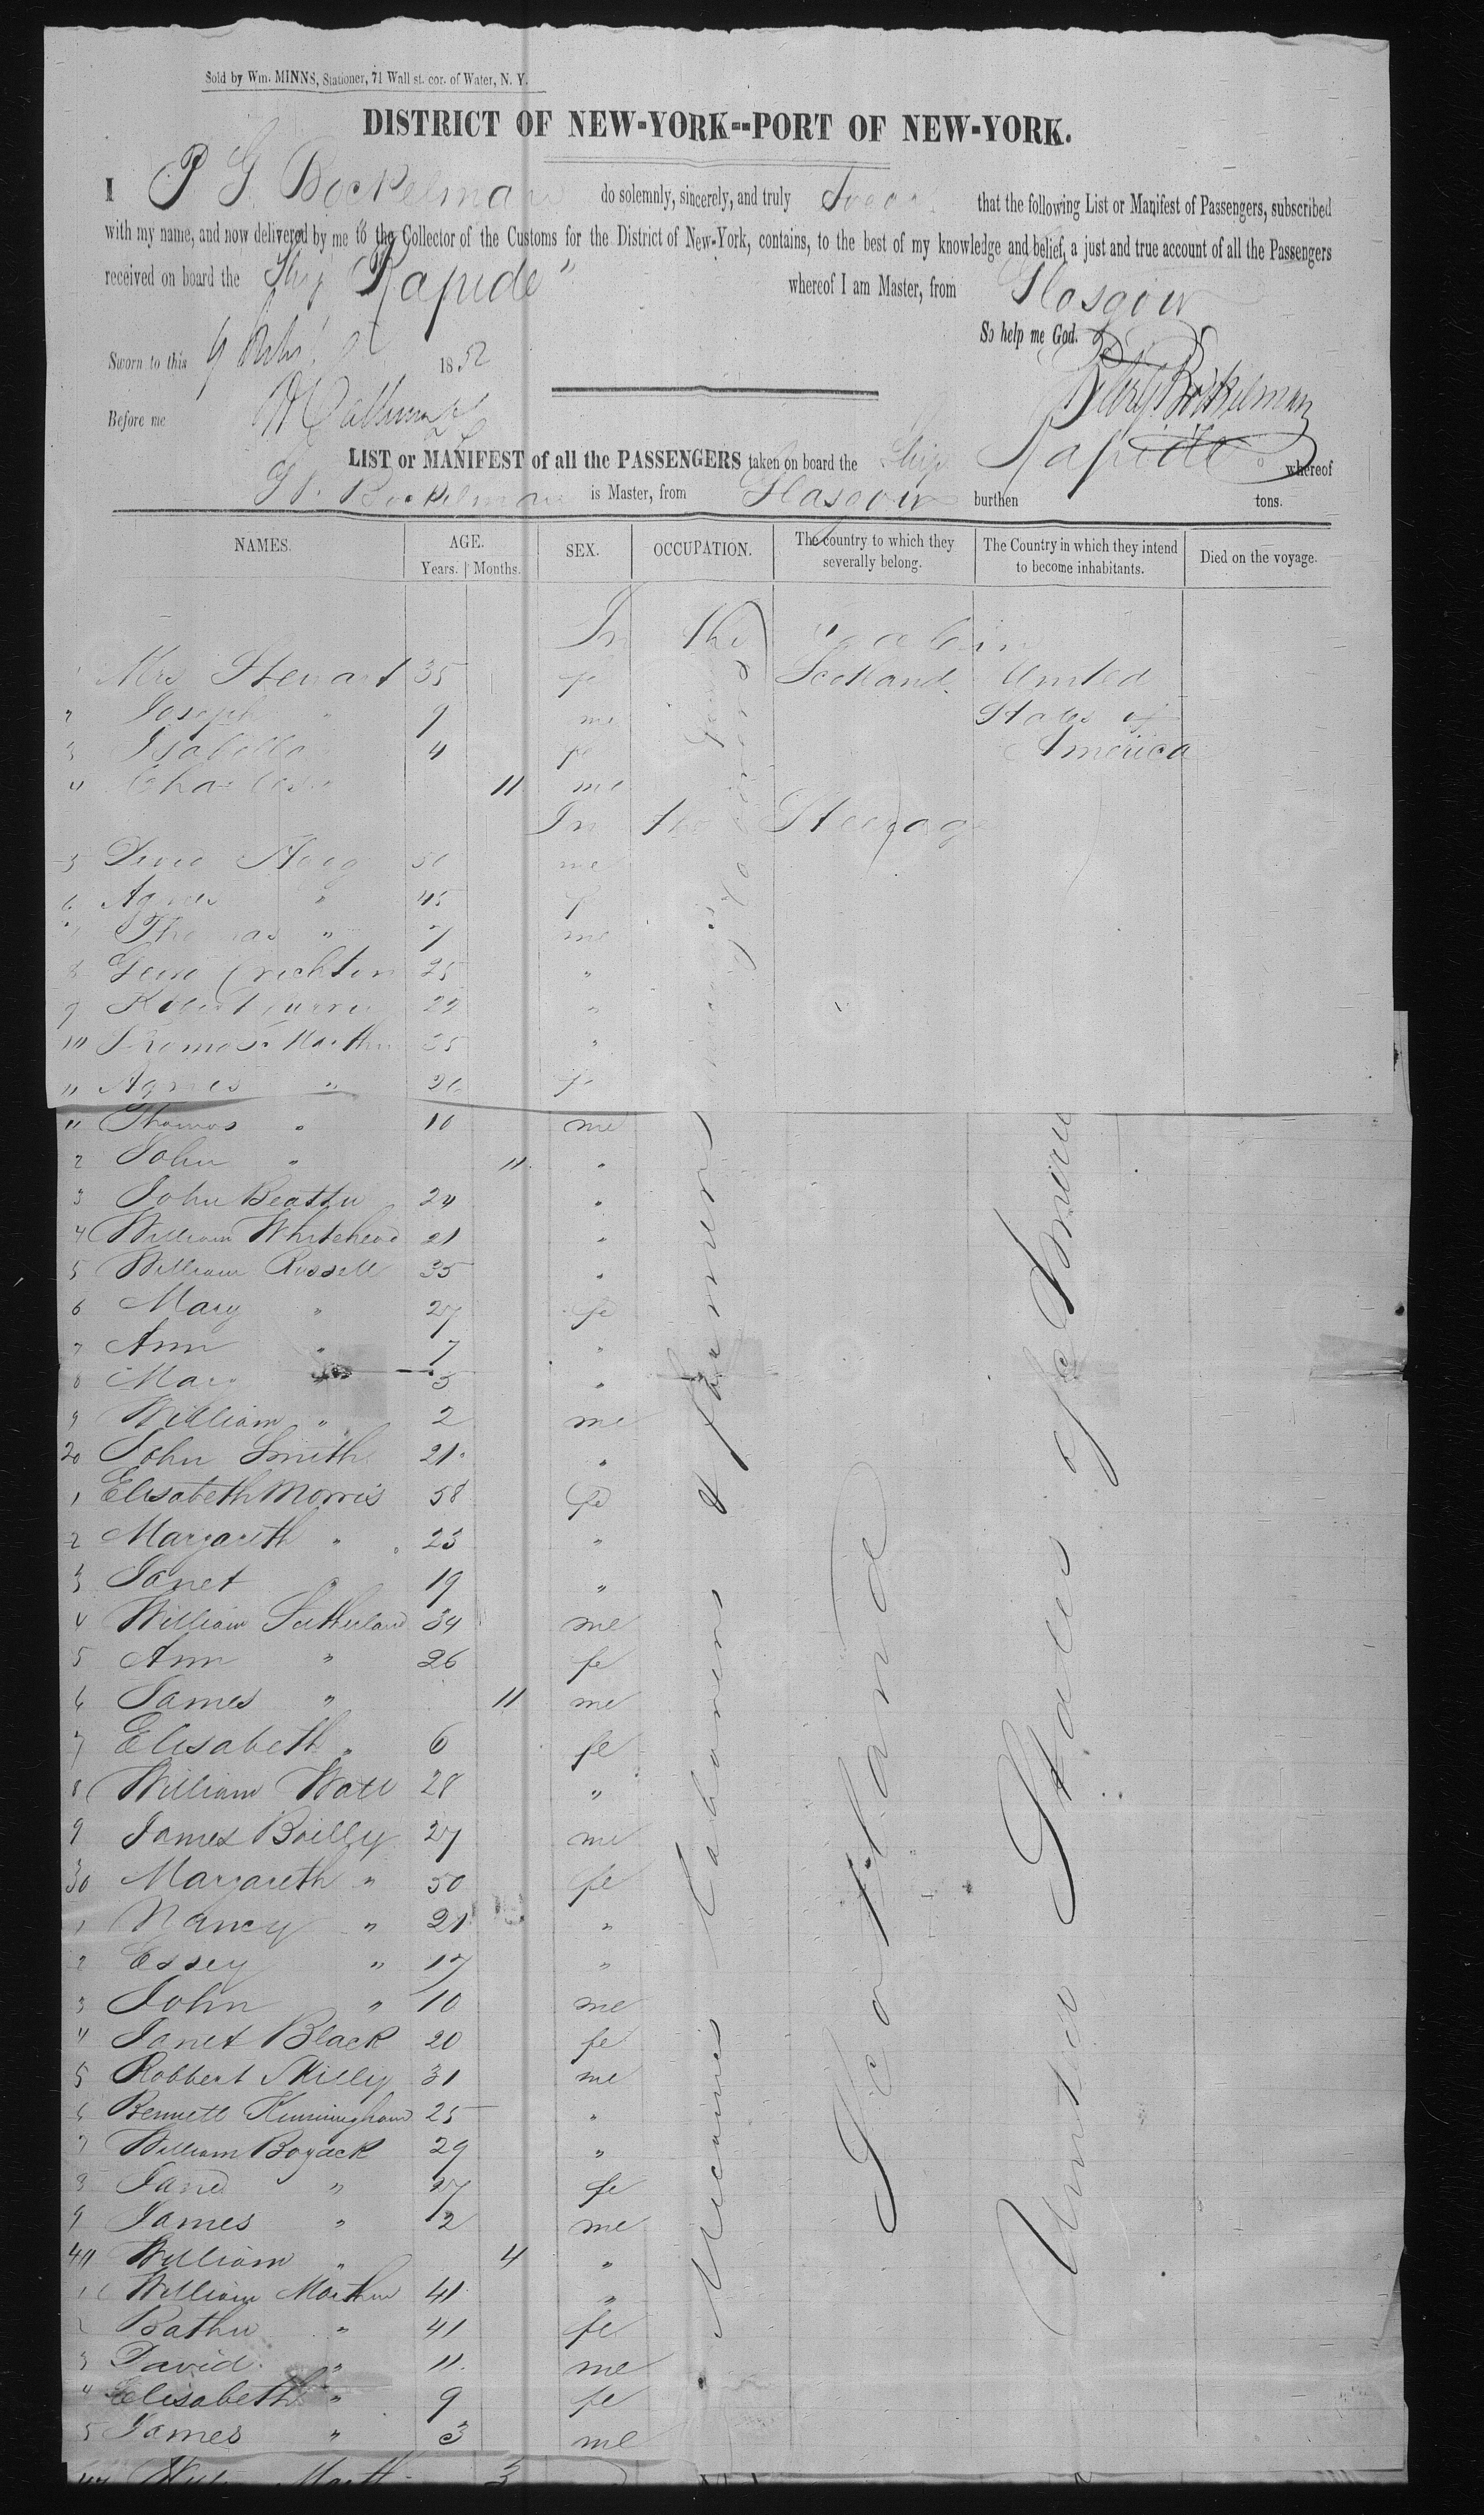 Sold by Wm. MINNS, Stationer, 71 Wall st. cor. of Water, N. Y.
DISTRICT OF NEW-YORK--PORT OF NEW-YORK.
I P G Bockelman do solemnly, sincerely, and truly Swear that the following List or Manifest of Passengers, subscribed
with my name, and now delivered by me to the Collector of the Customs for the District of New-York, contains, to the best of my knowledge and belief, a just and true account of all the Passengers
received on board the Ship Rapide" whereof I am Master, from Glasgow
So help me God.
Sworn to this 9 1852
Bockelman
Before me
LIST or MANIFEST of all the PASSENGERS taken on board the Ship Rapide whereof
Bockelman is Master, from Glasgow burthen tons.
NAMES. AGE. SEX. OCCUPATION. The country to which they severally belong. The Country in which they intend to become inhabitants. Died on the voyage.
Years. Months.
In the Cabin
1 Mrs Stewart 35 fe Scotland United
2 Joseph " 9 me States of
3 Isabella 4 fe America
4 Charles 11 me
In the Steerage
5 Hogg 50 me
6 Agnes " 45 f
Thomas " 7 me
8 Crichton 25 "
9 Robert 22 "
10 Thomas 35 "
11 Agnes " fe
" Thomas " 10 me
2 John " 11 "
3 John Beattie 24 "
4 William Whitehead 21 "
5 William Russell 35 "
6 Mary " 27 fe
7 Ann " 7 "
8 Mary 5 "
9 William " 2 me
20 John Smith 21 "
1 Elisabeth Morris 58 fe
2 Margareth " 23 "
3 Janet 19 "
4 William Sutherland 34 me
5 Ann " 26 fe
6 James " 11 me
7 Elisabeth " 6 fe
8 William Watt 28 "
9 James Bailly 27 me
30 Margareth " 50 fe
1 Nancy " 21 "
2 Essey " 17 "
3 John " 10 me
4 Janet Black 20 fe
5 Robbert Skilly 31 me
6 Bennett Kunningham 25 "
7 William Boyack 29 "
8 Jane " 27 fe
9 James " 2 me
40 William " 4 "
1 William 41 "
2 " 41 fe
3 David " 11 me
4 Elisabeth " 9 fe
5 James " 3 me
3
& farmers
Scotland
United States of America